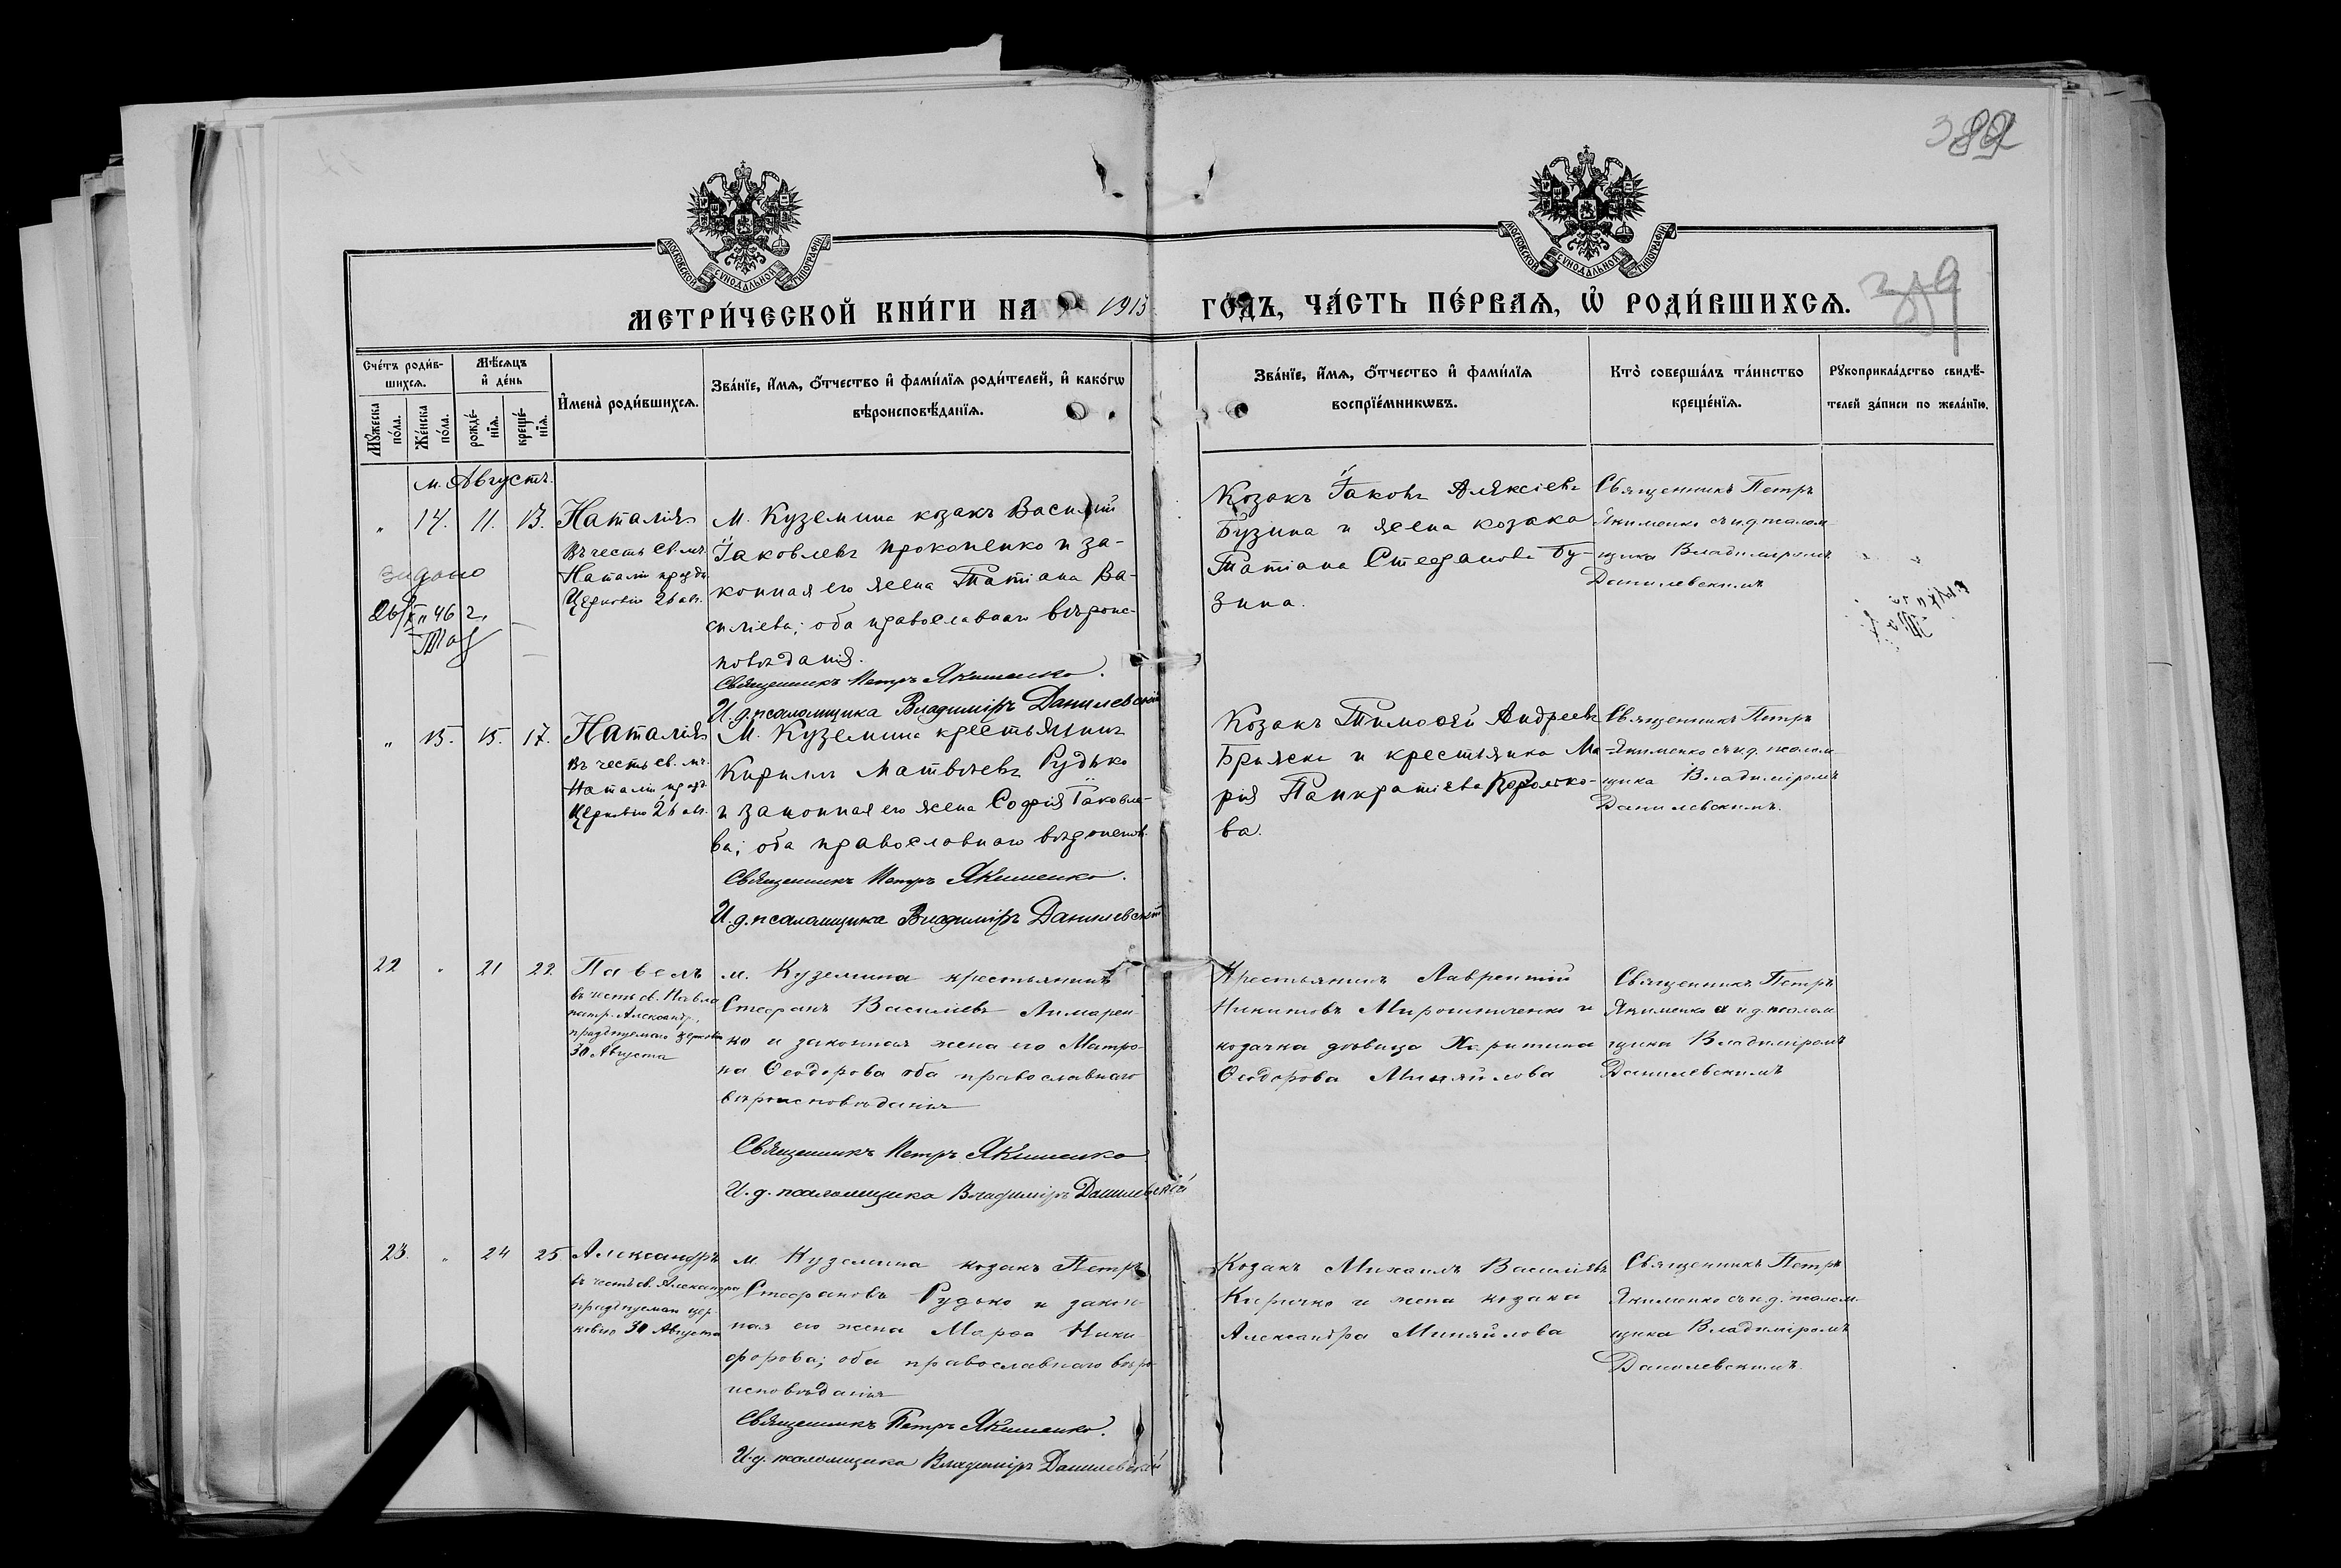 382
МОСКОВСКОЙ СѴНОДАЛЬНОЙ ТИПОГРАФІИ
МОСКОВСКОЙ СѴНОДАЛЬНОЙ ТИПОГРАФІИ
МЕТРИ́ЧЕСКОЙ КНИ́ГИ НА 1913 ГО́ДЪ, ЧА́СТЬ ПЕ́РВАѦ, Ѡ҆ РОДИ́ВШИХСѦ.
Сче́тъ роди́в-
шихсѧ.
Мꙋ́жеска по́ла.
Же́нска по́ла.
Мѣ́сѧцъ
и҆ де́нь
рожде́-
нїѧ.
креще́-
нїѧ.
И҆мена̀ роди́вшихсѧ.
Зва́нїе, и҆́мѧ, ѻ҆́тчество и҆ фами́лїѧ роди́телей, и҆ како́гѡ
вѣроисповѣ́данїѧ.
Зва́нїе, и҆́мѧ, ѻ҆́тчество и҆ фами́лїѧ
воспрїе́мникѡвъ.
Кто̀ соверша́лъ та́инство
креще́нїѧ.
Рꙋкоприкла́дство свидѣ́-
телей за́писи по жела́нїю.
м. Августъ.
„ 14. 11. 13. Наталія
Въ честь св. мч.
Наталіи празд.
Церковію 26 авг.
видано
26/XII 46 г.
М. Куземина козакъ Василій
Іаковлевъ Прокопенко и за-
конная его жена Татіана Ва-
силіева; оба православнаго вѣроис-
повѣданія.
Священникъ Петръ Якименко.
И. д. псаломщика Владиміръ Данилевскій
Козакъ Іаковъ Алексіевъ
Бузина и жена козака
Татіана Стефанова Бу-
зина.
Священникъ Петръ
Якименко съ и. д. псалом-
щика Владиміромъ
Данилевскимъ
„ 15. 15. 17. Наталія
Въ честь св. мч.
Наталіи празд.
Церковію 26 авг.
М. Куземина крестьянинъ
Кириллъ Матвѣевъ Рудько
и законная его жена Софія Іаковле-
ва; оба православнаго вѣроиспов.
Священникъ Петръ Якименко.
И. д. псаломщика Владиміръ Данилевскій
Козакъ Тимофей Андреевъ
и крестьянка Ма-
рія Панкратіева
ва.
Священникъ Петръ
Якименко съ и. д. псалом-
щика Владиміромъ
Данилевскимъ.
22 „ 21 22. Павелъ
въ честь св. Павла
патр. Александр.,
празднуемаго церковію
30 Августа
м. Куземина крестьянинъ
Стефанъ Василіевъ Лимарен-
ко и законная жена его Матро-
на Ѳеодорова оба православнаго
вѣроисповѣданія
Священникъ Петръ Якименко
И. д. псаломщика Владиміръ Данилевскій
Крестьянинъ Лаврентій
Никитовъ Мирошниченко и
козачка дѣвица Харитина
Ѳеодорова Миняйлова
Священникъ Петръ
Якименко съ и. д. псалом
щика Владиміромъ
Данилевскимъ
23. „ 24 25. Александръ
въ честь св. Александра
празднуемаго цер-
ковію 30 Августа
м Куземина козакъ Петръ
Стефановъ Рудько и закон-
ная его жена Марѳа Ники-
форова; оба православнаго вѣро-
исповѣданія
Священникъ Петръ Якименко.
И. д. псаломщика Владиміръ Данилевскій
Козакъ Михаилъ Василіевъ
Киричко и жена козака
Александра Миняйлова
Священникъ Петръ
Якименко съ и. д. псалом-
щика Владиміромъ
Данилевскимъ.